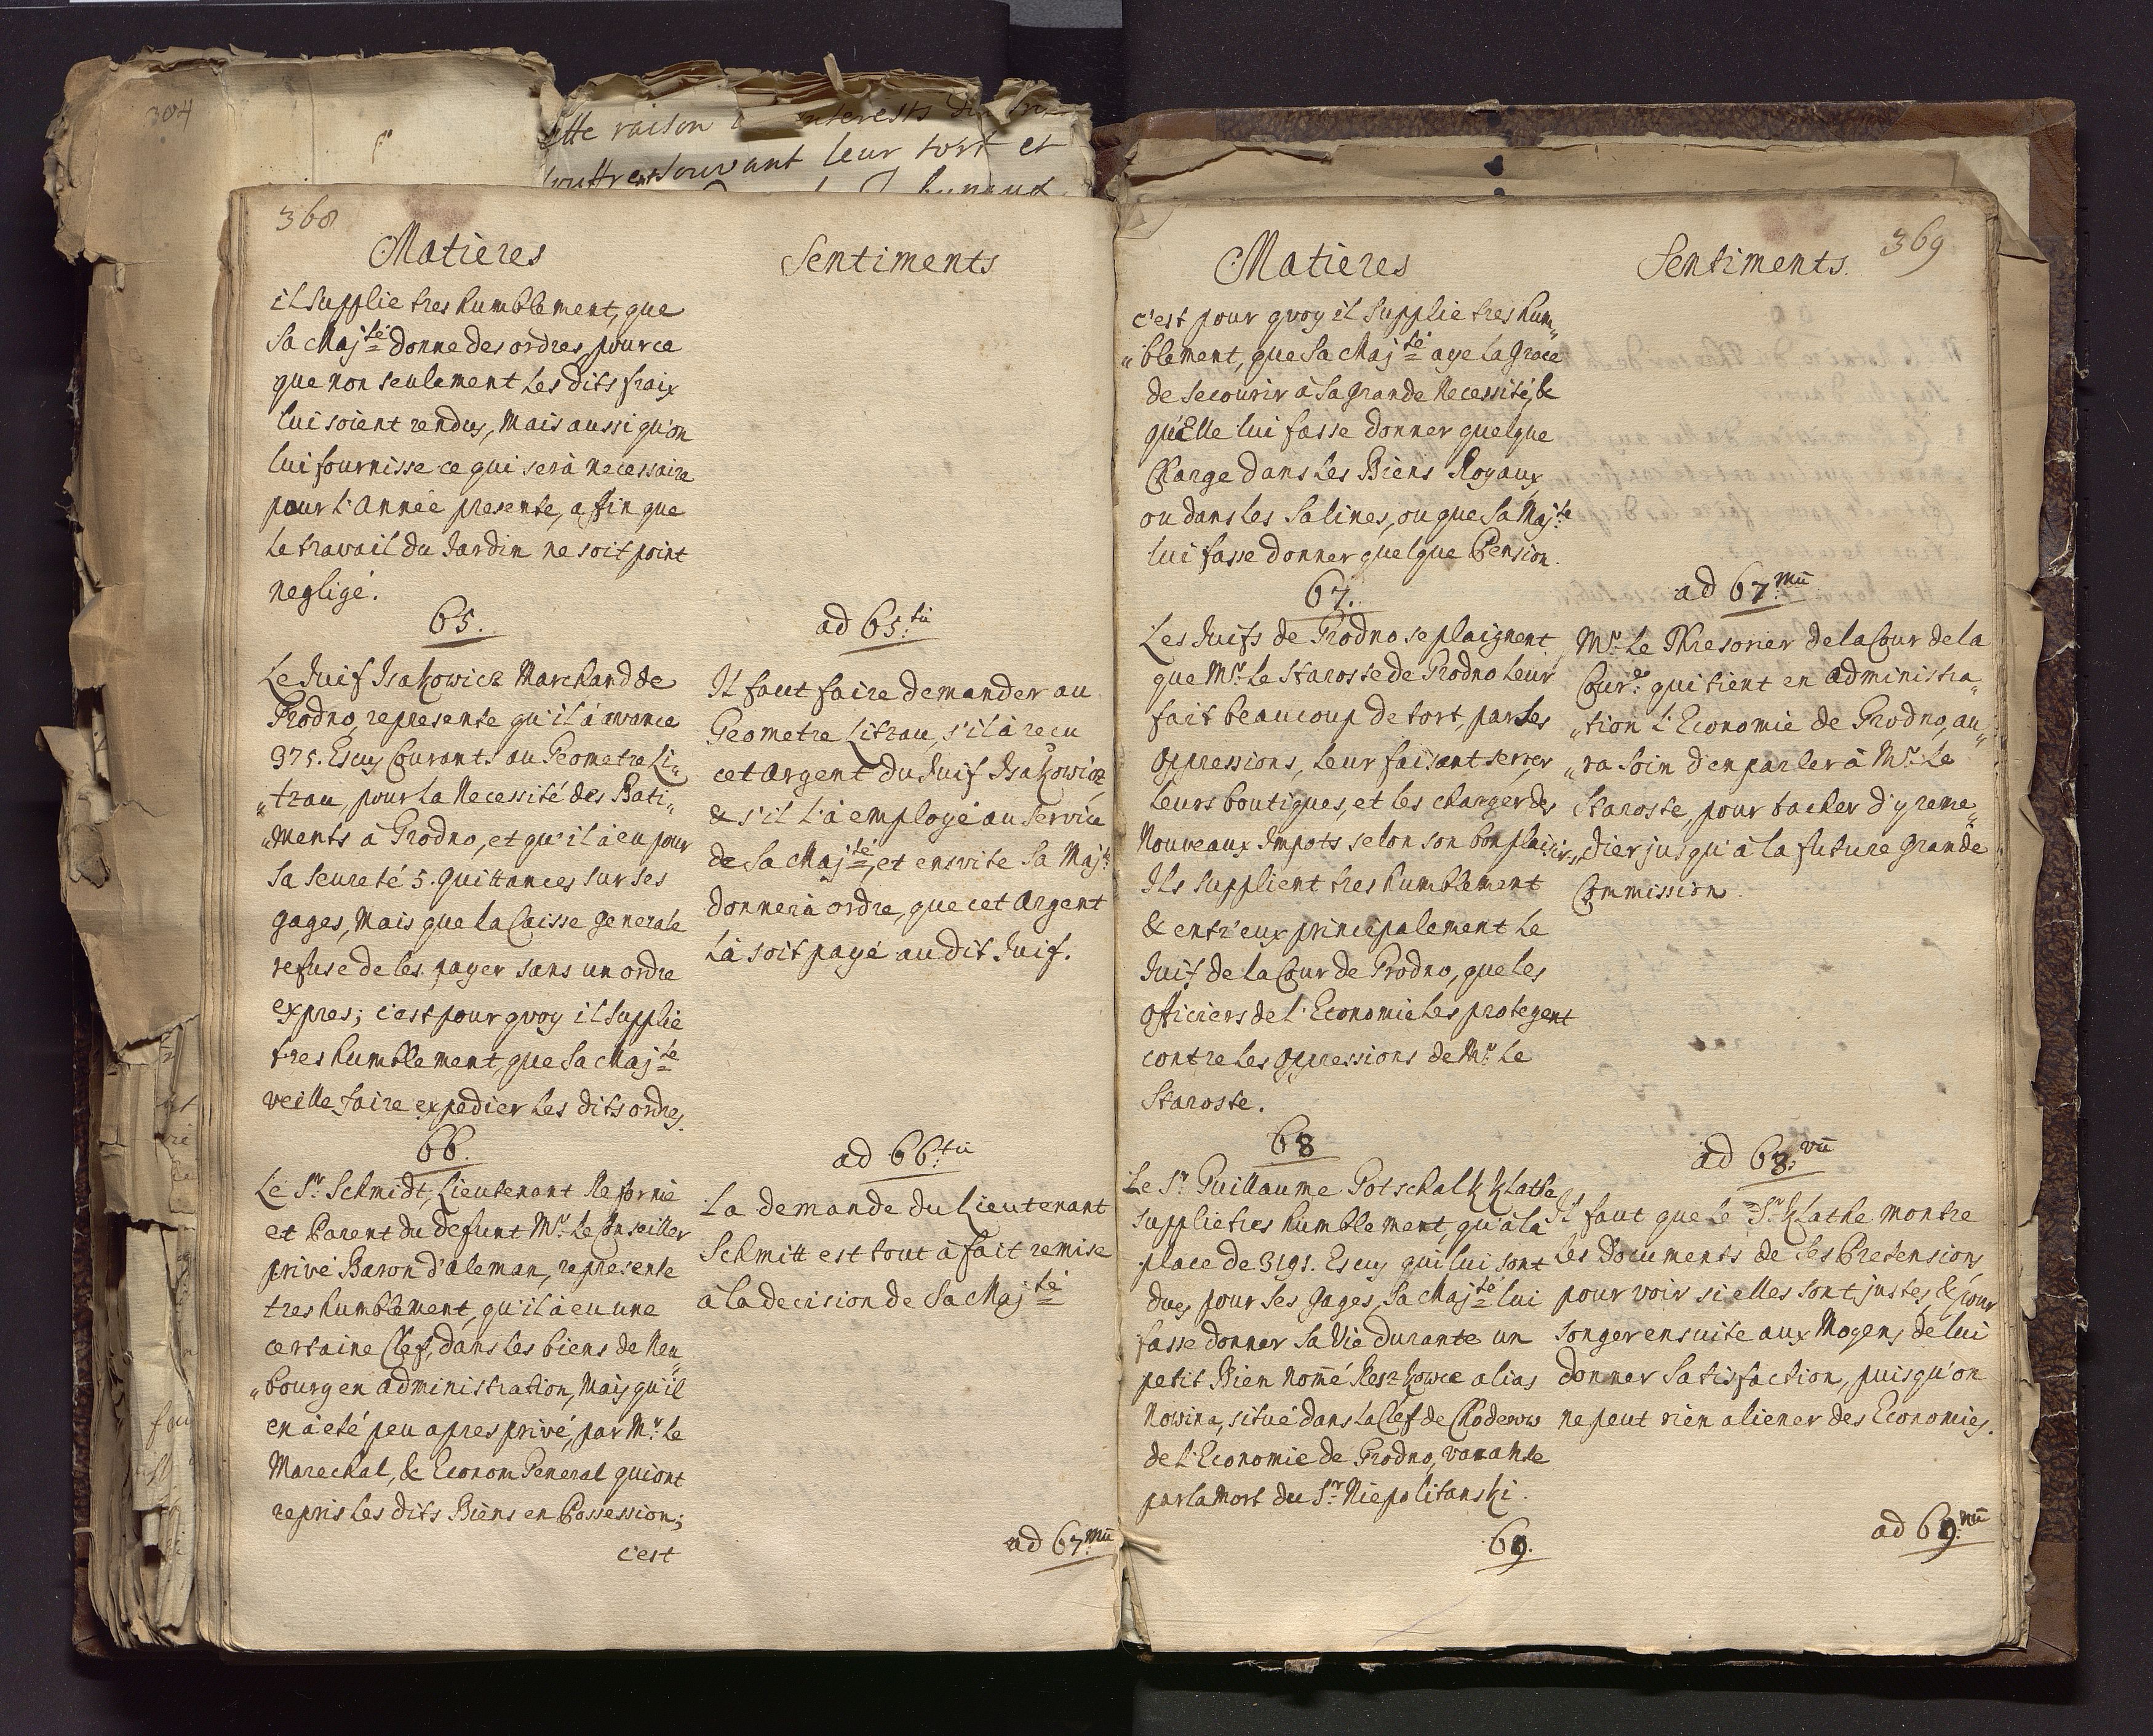 304
cette raison
interests
souffrent souvant leur tort et
368
Matieres
il supplie tres humblement, que
Sa Maj.té donne des ordres, pour ce
que non seulement les dits fraix
lui soient rendus, Mais aussi qu'on
lui fournisse ce qui serà necessaire
pour l'Année presente, a fin que
le travail du Jardin ne soit point
negligé.
65.
Le Juif Isakowicz Marchand de
Grodno, represente qu'il à avancé
975. Escus Courants au Geometre Li„
„tzau, pour la Necessité des Bati„
„ments à Grodno, et qu'il à eu pour
sa seureté 5. quittances sur ses
gages, Mais que la Caisse generale
refuse de les payer sans un ordre
expres; c'est pour quoy il supplie
tres humblement, que Sa Maj.té
veille faire expedier les dits ordres.
66.
Le Sr. Schmidt, Lieutenant Reformé
et Parent du defunt Mr. le Conseiller
privé Baron d'Aleman, represente
tres humblement, qu'il à eu une
certaine Clef, dans les biens de Neu„
„bourg en administration, Mais qu'il
en à eté peu apres privé, par Mr. le
Marechal, & Econom General qui ont
repris les dits Biens en Possession;
c'est
Sentiments
ad 65.tū
Il faut faire demander au
Geometre Litzau, s'il à reçu
cet Argent du Juif Isakowicz
& s'il l'à employé au Service
de Sa Maj.té, et ensuite Sa Maj.té
donnerà ordre, que cet Argent
là soit payé au dit Juif.
ad 66.tū
La demande du Lieutenant
Schmitt est tout à fait remise
à la decision de Sa Maj.té
ad 67.mū
369
Matieres
c'est pour quoy il supplie tres hum„
„blement, que Sa Maj.té aye la Grace
de secourir à sa grande Necessité, &
qu'Elle lui fasse donner quelque
Charge dans les Biens Royaux,
ou dans les Salines, ou que Sa Maj.té
lui fasse donner quelque Pension.
67.
Les Juifs de Grodno se plaignent,
que Mr. le Staroste de Grodno leur
fait beaucoup de tort, par les
oppressions, leur faisant serrer
leurs boutiques, et les charger des
Nouveaux Impots selon son bon plaisir.
Ils supplient tres humblement
& entr'eux principalement le
Juif de la Cour de Grodno, que les
Officiers de l'Economie les protegent
contre les oppressions de Mr. le
Staroste.
68
Le Sr. Guillaume Gotschalk Klathe
supplie tres humblement, qu'à la
place de 3191. Escus qui lui sont
dues pour ses Gages, Sa Maj.té lui
fasse donner sa Vie durante un
petit Bien nom̃é Reszkowce alias
Nowina, situé dans la Clef de Chodorow
de l'Economie de Grodno, vacante
par la Mort du Sr. Niepolitanski.
69.
Sentiments.
ad 67.mū
Mr. le Thresorier de la Cour de la
Cour.e qui tient en administra„
„tion l'Economie de Grodno, au„
„ra soin d'en parler à Mr. le
Staroste, pour tacher d'y reme„
„dier jusqu'à la future Grande
Commission.
ad 68.vū
Il faut que le Sr. Klathe montre
les documents de ses Pretensions,
pour voir si elles sont justes, & pour
songer ensuite aux Moyens de lui
donner Satisfaction, puisqu'on
ne peut rien aliener des Economies.
ad 69.nū